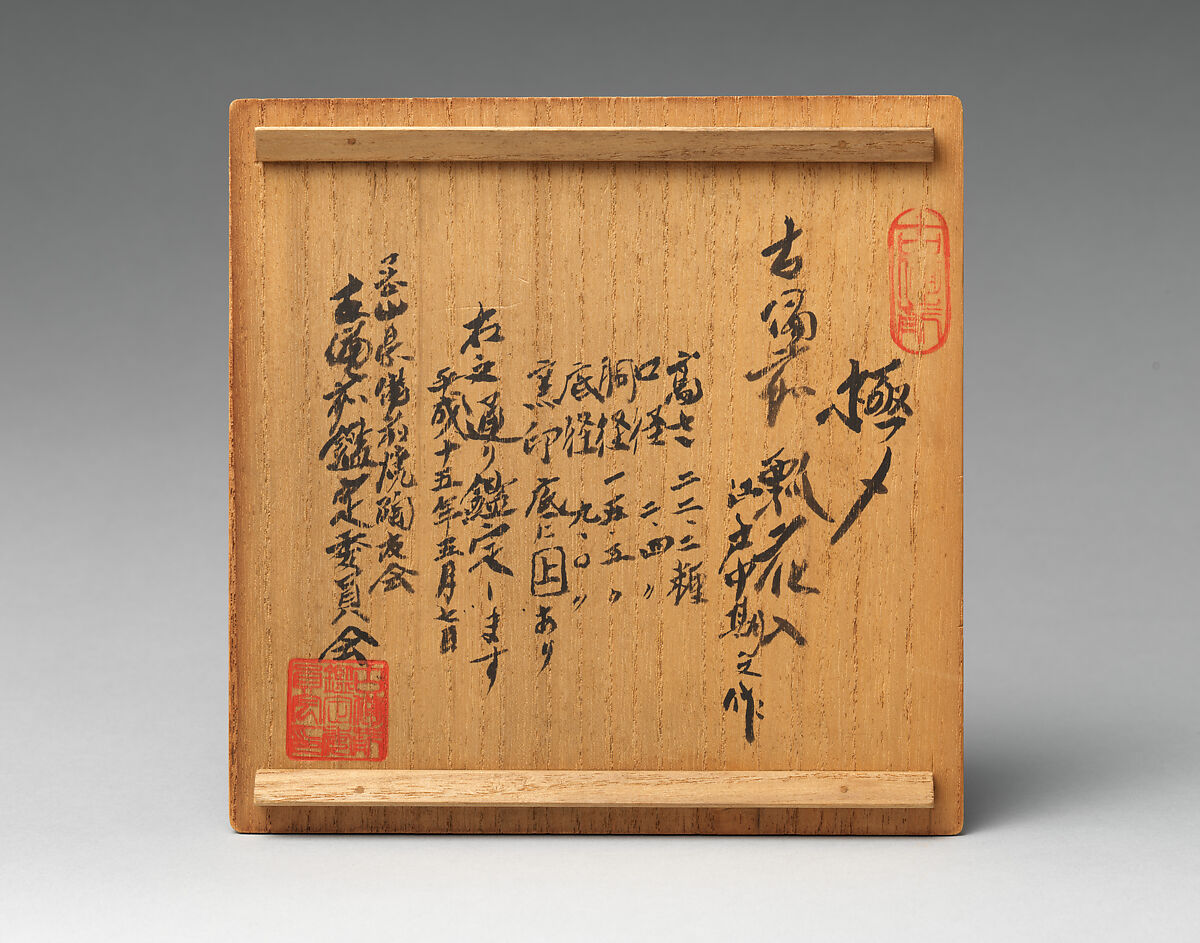 極メ
古備前 瓢花入
江戸中期之作
高さ 二二、二糎
口径 二、四〃
胴径 一五、五〃
底径 九、〇〃
窯印 底に上あり
右之通り鑑定します
平成十五年五月七日
岡山県備前焼陶友会
古備前鑑定委員会